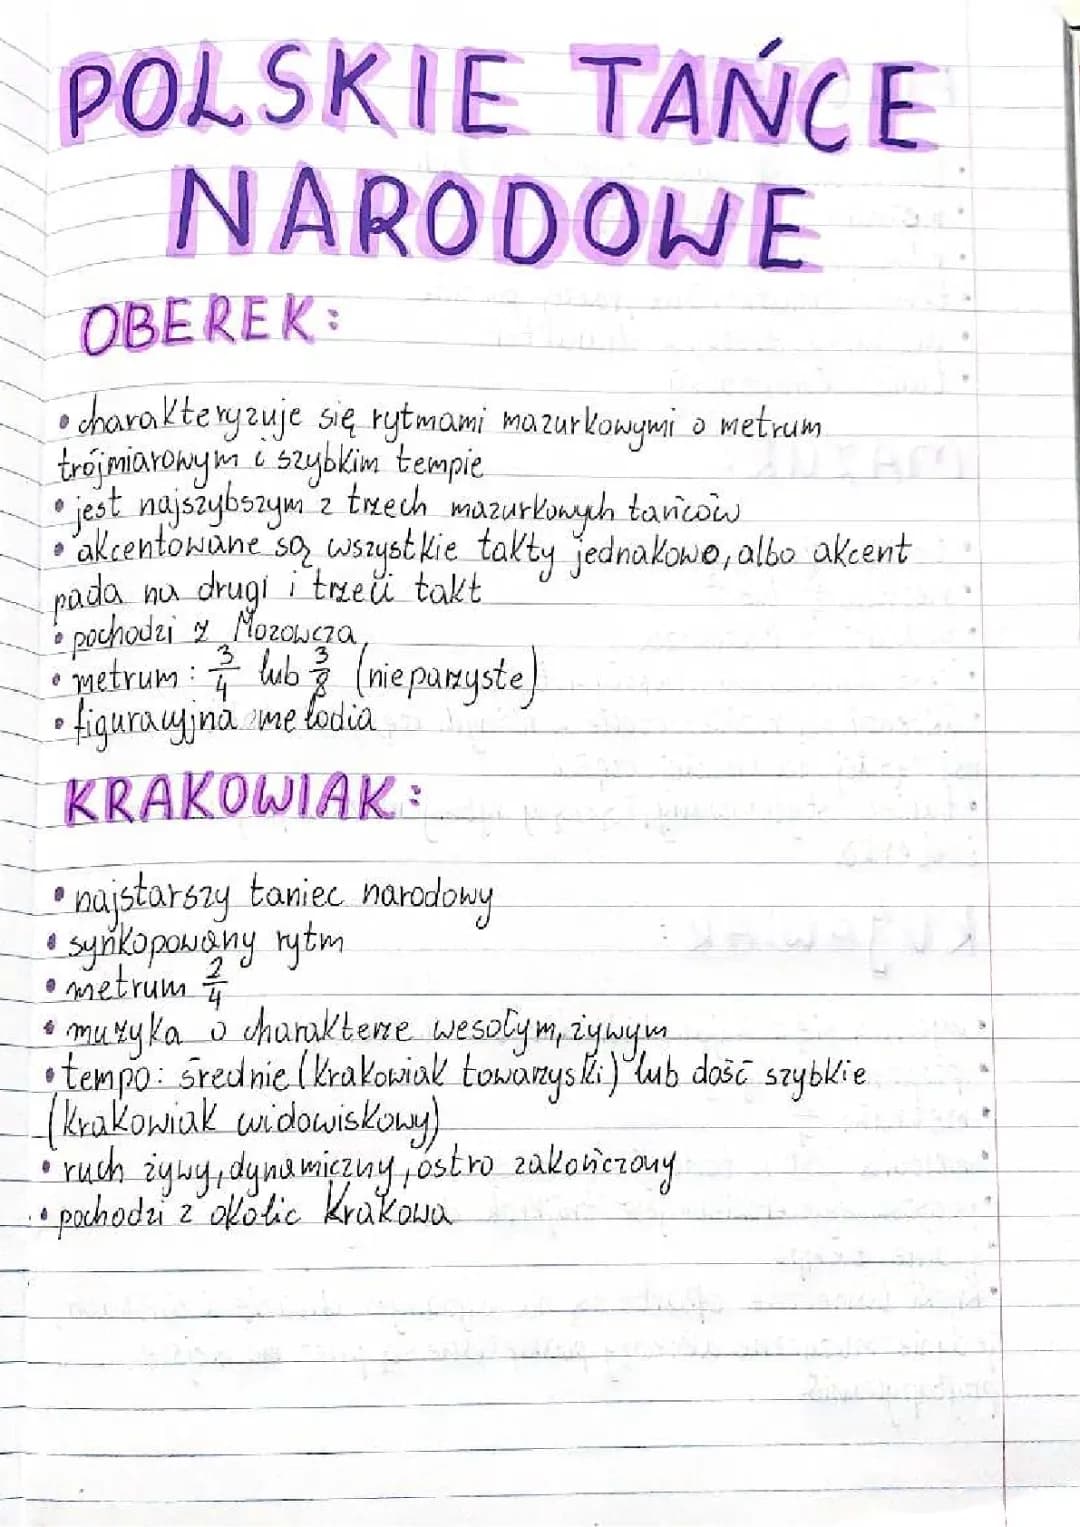 POLSKIE TAŃCE
NARODOWE
OBEREK:
• charakteryzuje się rytmami mazurkowymi o metrum
trójmiarowym i szybkim tempie
• jest najszybszym z trzech mazurkowych tańców
• akcentowane są wszystkie takty jednakowo, albo akcent
pada na drugi i trzeci takt
• pochodzi z Mozowcza
• metrum: 3/4 lub 3/8 (nieparzyste)
• figuracyjna melodia
KRAKOWIAK:
• najstarszy taniec narodowy
• synkopowany rytm
• metrum 2/4
• muzyka o charakterze wesołym, żywym
• tempo: średnie (krakowiak towarzyski) lub dość szybkie
(krakowiak widowiskowy)
• ruch żywy, dynamiczny, ostro zakończony
• pochodzi z okolic Krakowa